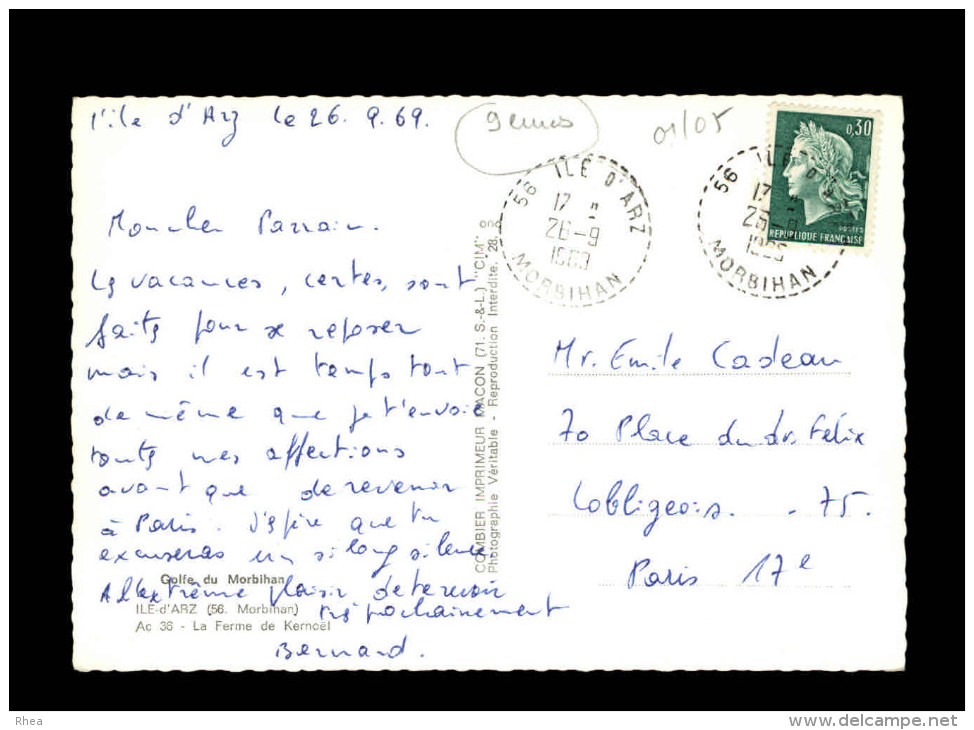 l'île d'Arz le 26.9.69.
Mon cher Parrain.
Les vacances, certes, sont
faites pour se reposer
mais il est temps tout
de même que je t'envoie
toutes mes affections
avant que de revenir
à Paris. J'espère que tu
excuseras un si long silence
A l'extrême plaisir de te revoir
très prochainement
Bernard.
Golfe du Morbihan
ILE-d'ARZ (56. Morbihan)
Ac 36 - La Ferme de Kernoël
COMBIER IMPRIMEUR MACON (71. S.-&-L.) "CIM"
Photographie Véritable - Reproduction Interdite. 28.
01/05
56 ILE D'ARZ
17 H
26-9
1969
MORBIHAN
56 ILE D'ARZ
17 H
26-9
1969
MORBIHAN
0,30
POSTES
REPUBLIQUE FRANÇAISE
Mr. Emile Cadeau
70 Place du dr. Félix
Lobligeois. - 75.
Paris 17e
Rhea
www.delcampe.net